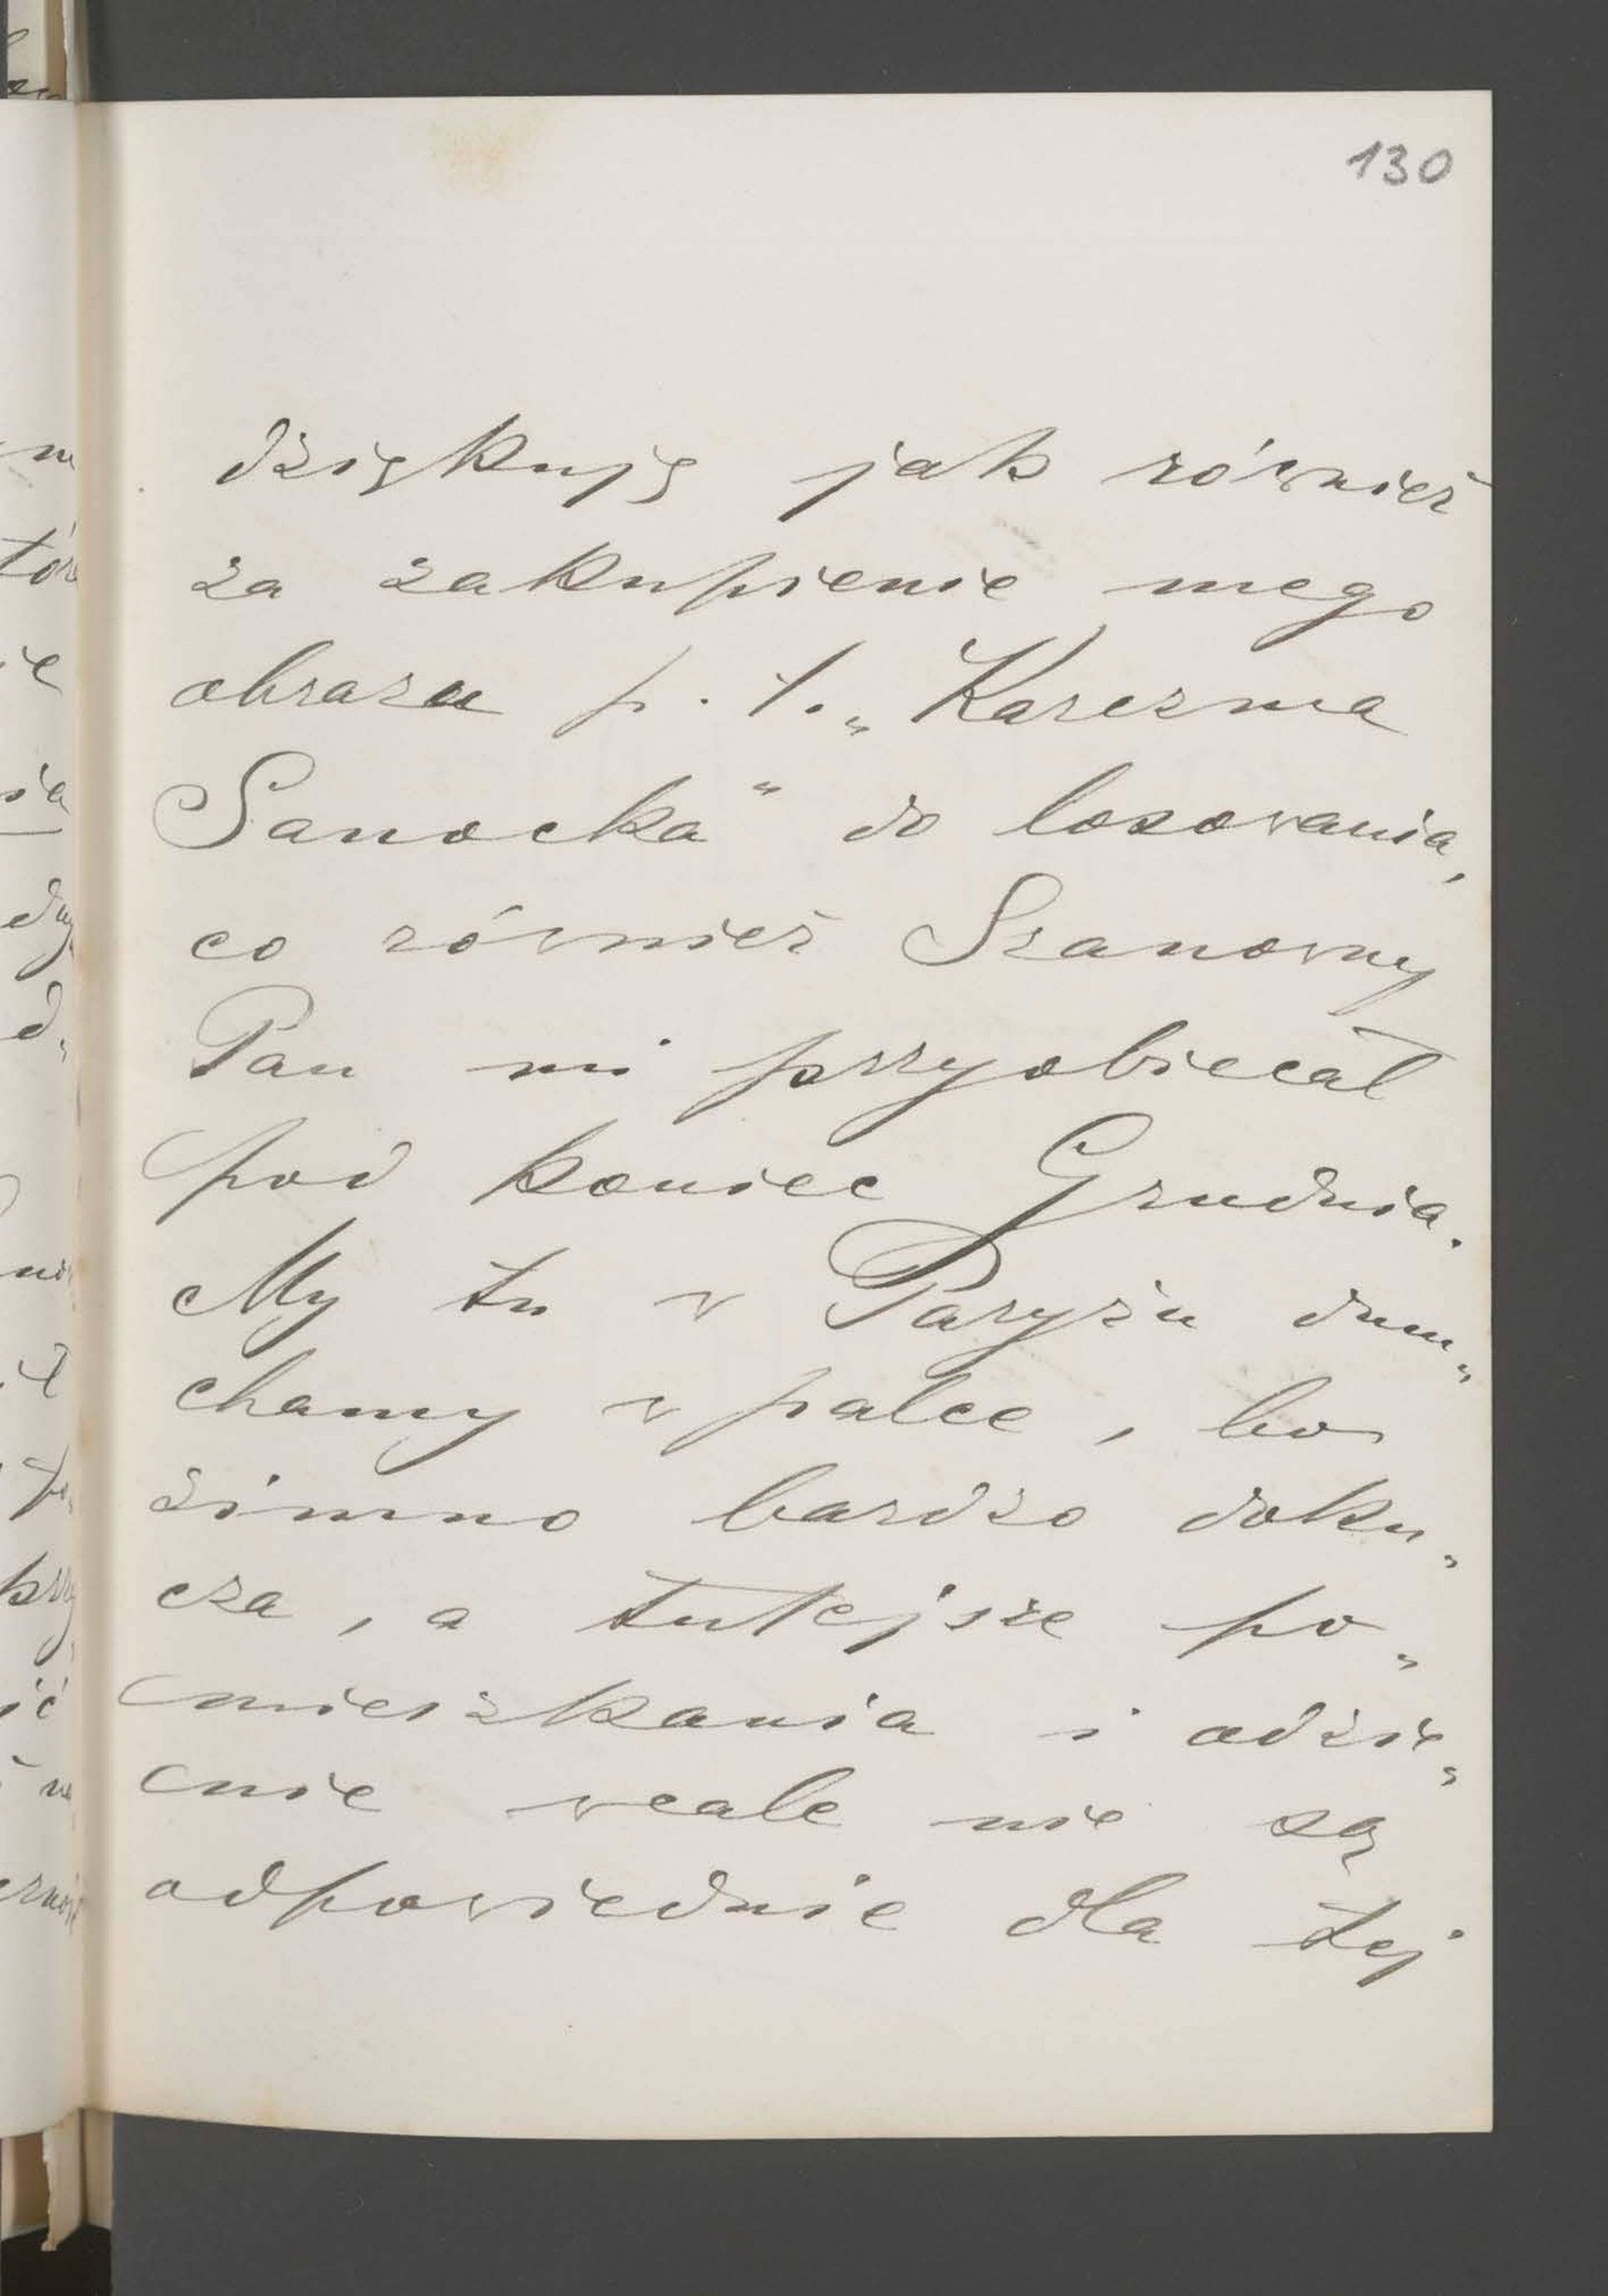 130
dziękuję jak również
za zakupienie mego
obrazu p. t. „Karczma
Sanocka" do losowania,
co również Szanowny
Pan mi przyobiecał
pod koniec Grudnia.
My tu w Paryżu dmu„
chamy w palce, bo
zimno bardzo doku„
cza, a tutejsze po„
mieszkania i odzie„
nie wcale nie są
odpowiednie dla tej